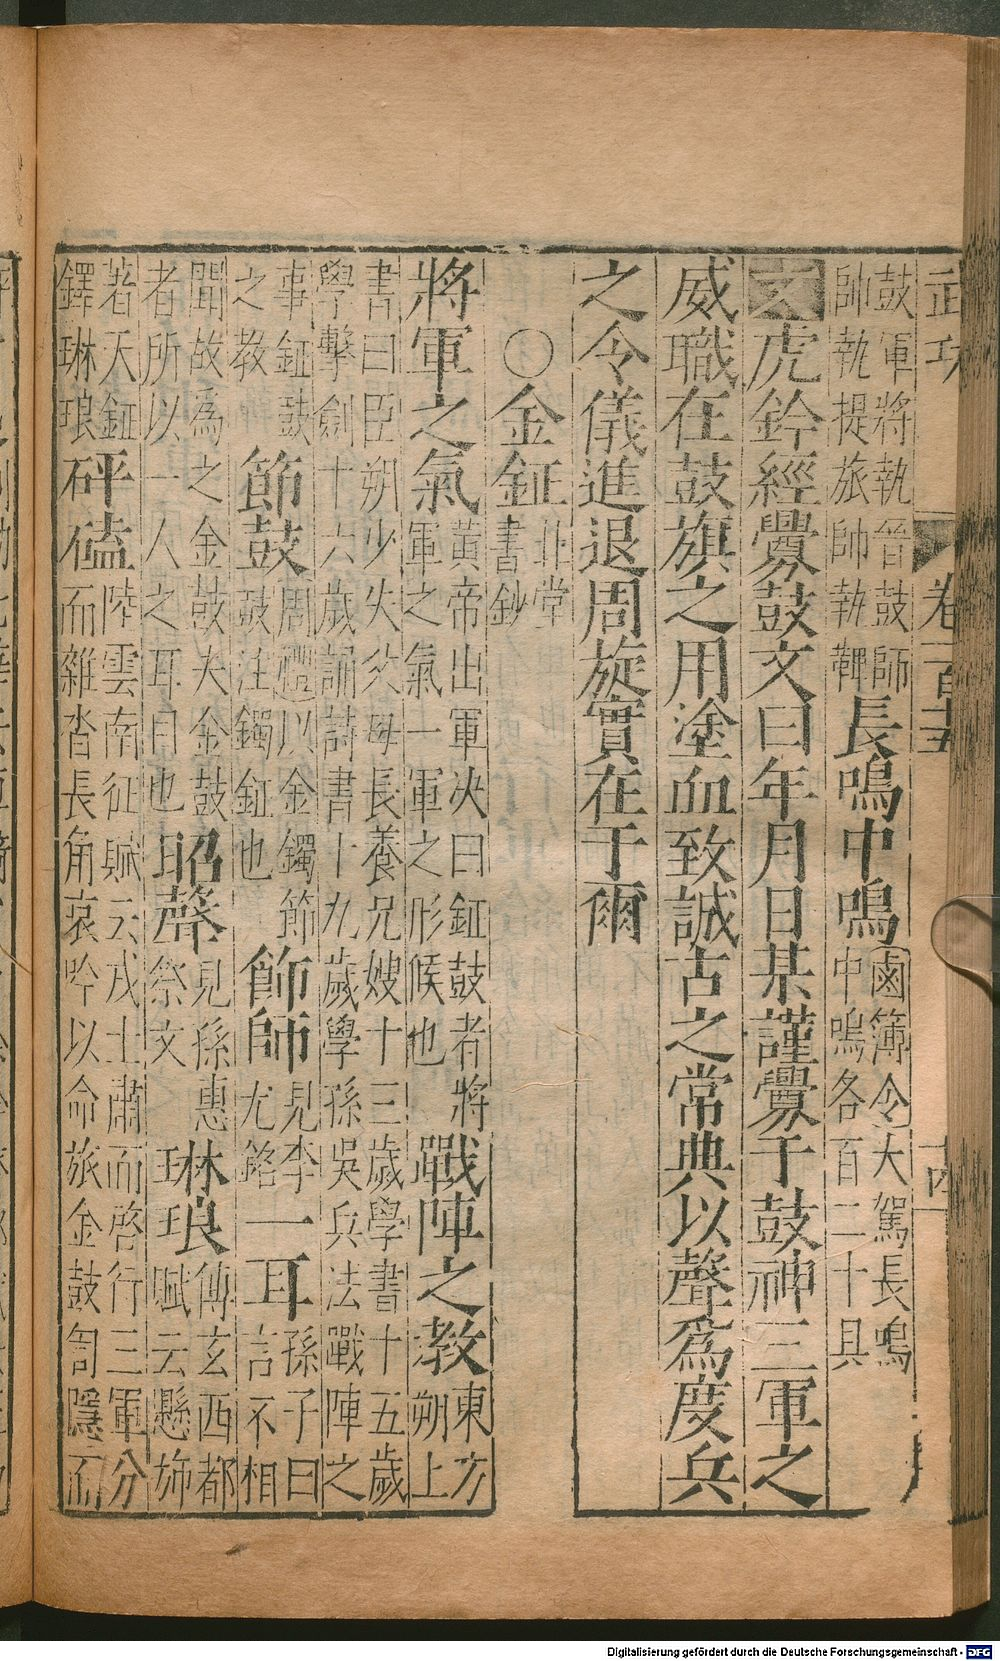 武功
卷一百五
十四
鼓軍將執晉鼓師
帥執提旅帥執鞞長鳴中鳴鹵簿令大駕長鳴
中鳴各百二十具
文虎鈐經釁鼓文曰年月日某謹釁于鼓神三軍之
威職在鼓旗之用塗血致誠古之常典以聲爲度兵
之令儀進退周旋實在于爾
〇金鉦北堂
書鈔
將軍之氣黃帝出軍决曰鉦鼓者將
軍之氣一軍之形候也戰陣之教東方
朔上
書曰臣朔少失父母長養兄嫂十三歲學書十五歲
學擊劍十六歲誦詩書十九歲學孫吳兵法戰陣之
事鉦鼓
之教節鼓周禮以金鐲節
鼓注鐲鉦也飾師見李
尤銘一耳孫子曰
言不相
聞故為之金鼓夫金鼓
者所以一人之耳目也昭聲見孫惠
祭文琳琅傅玄西都
賦云懸斾
著天鉦
鐸琳琅砰磕陸雲南征賦云戎士肅而啓行三軍分
而雜沓長角哀吟以命旅金鼓訇隱而
Digitalisierung gefördert durch die Deutsche Forschungsgemeinschaft - DFG